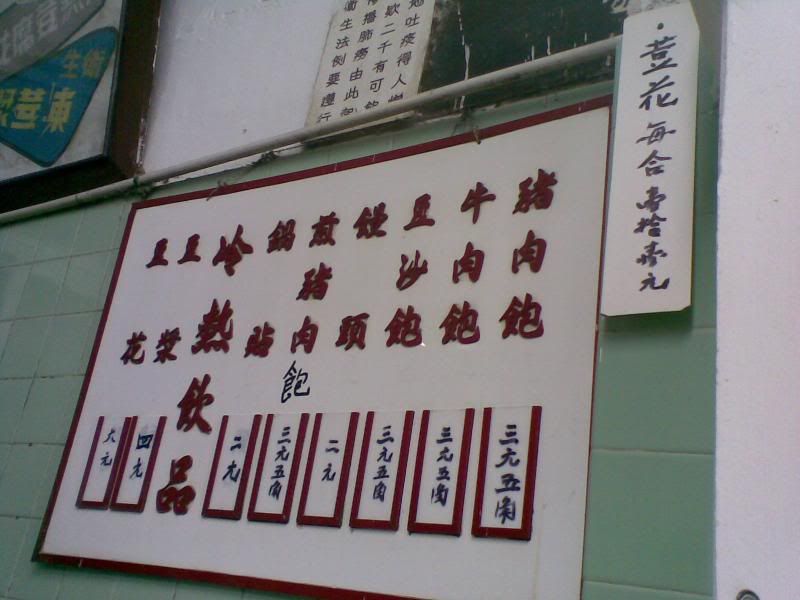 荳花每合壹拾壹元
吐痰得人
款二千有可
播肺癆由此
生法例要遵行
衛生
凍荳
豬肉飽
三元五角
牛肉飽
三元五角
豆沙飽
三元五角
饅頭
二元
煎豬肉飽
三元五角
鍋貼
二元
冷熱飲品
豆漿
四元
豆花
六元